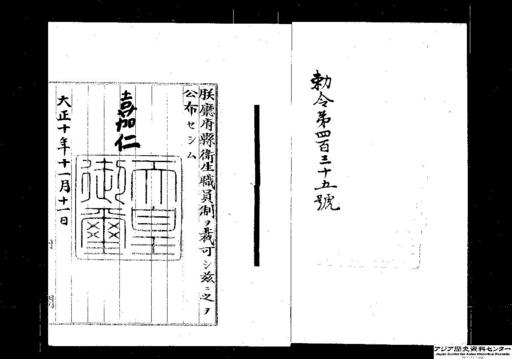 勅令第四百三十五號
朕廳府縣衛生職員制ヲ裁可シ茲ニ之ヲ
公布セシム
嘉仁
天皇
御璽
大正十年十一月十一日
アジア歴史資料センター
Japan Center for Asian Historical Records